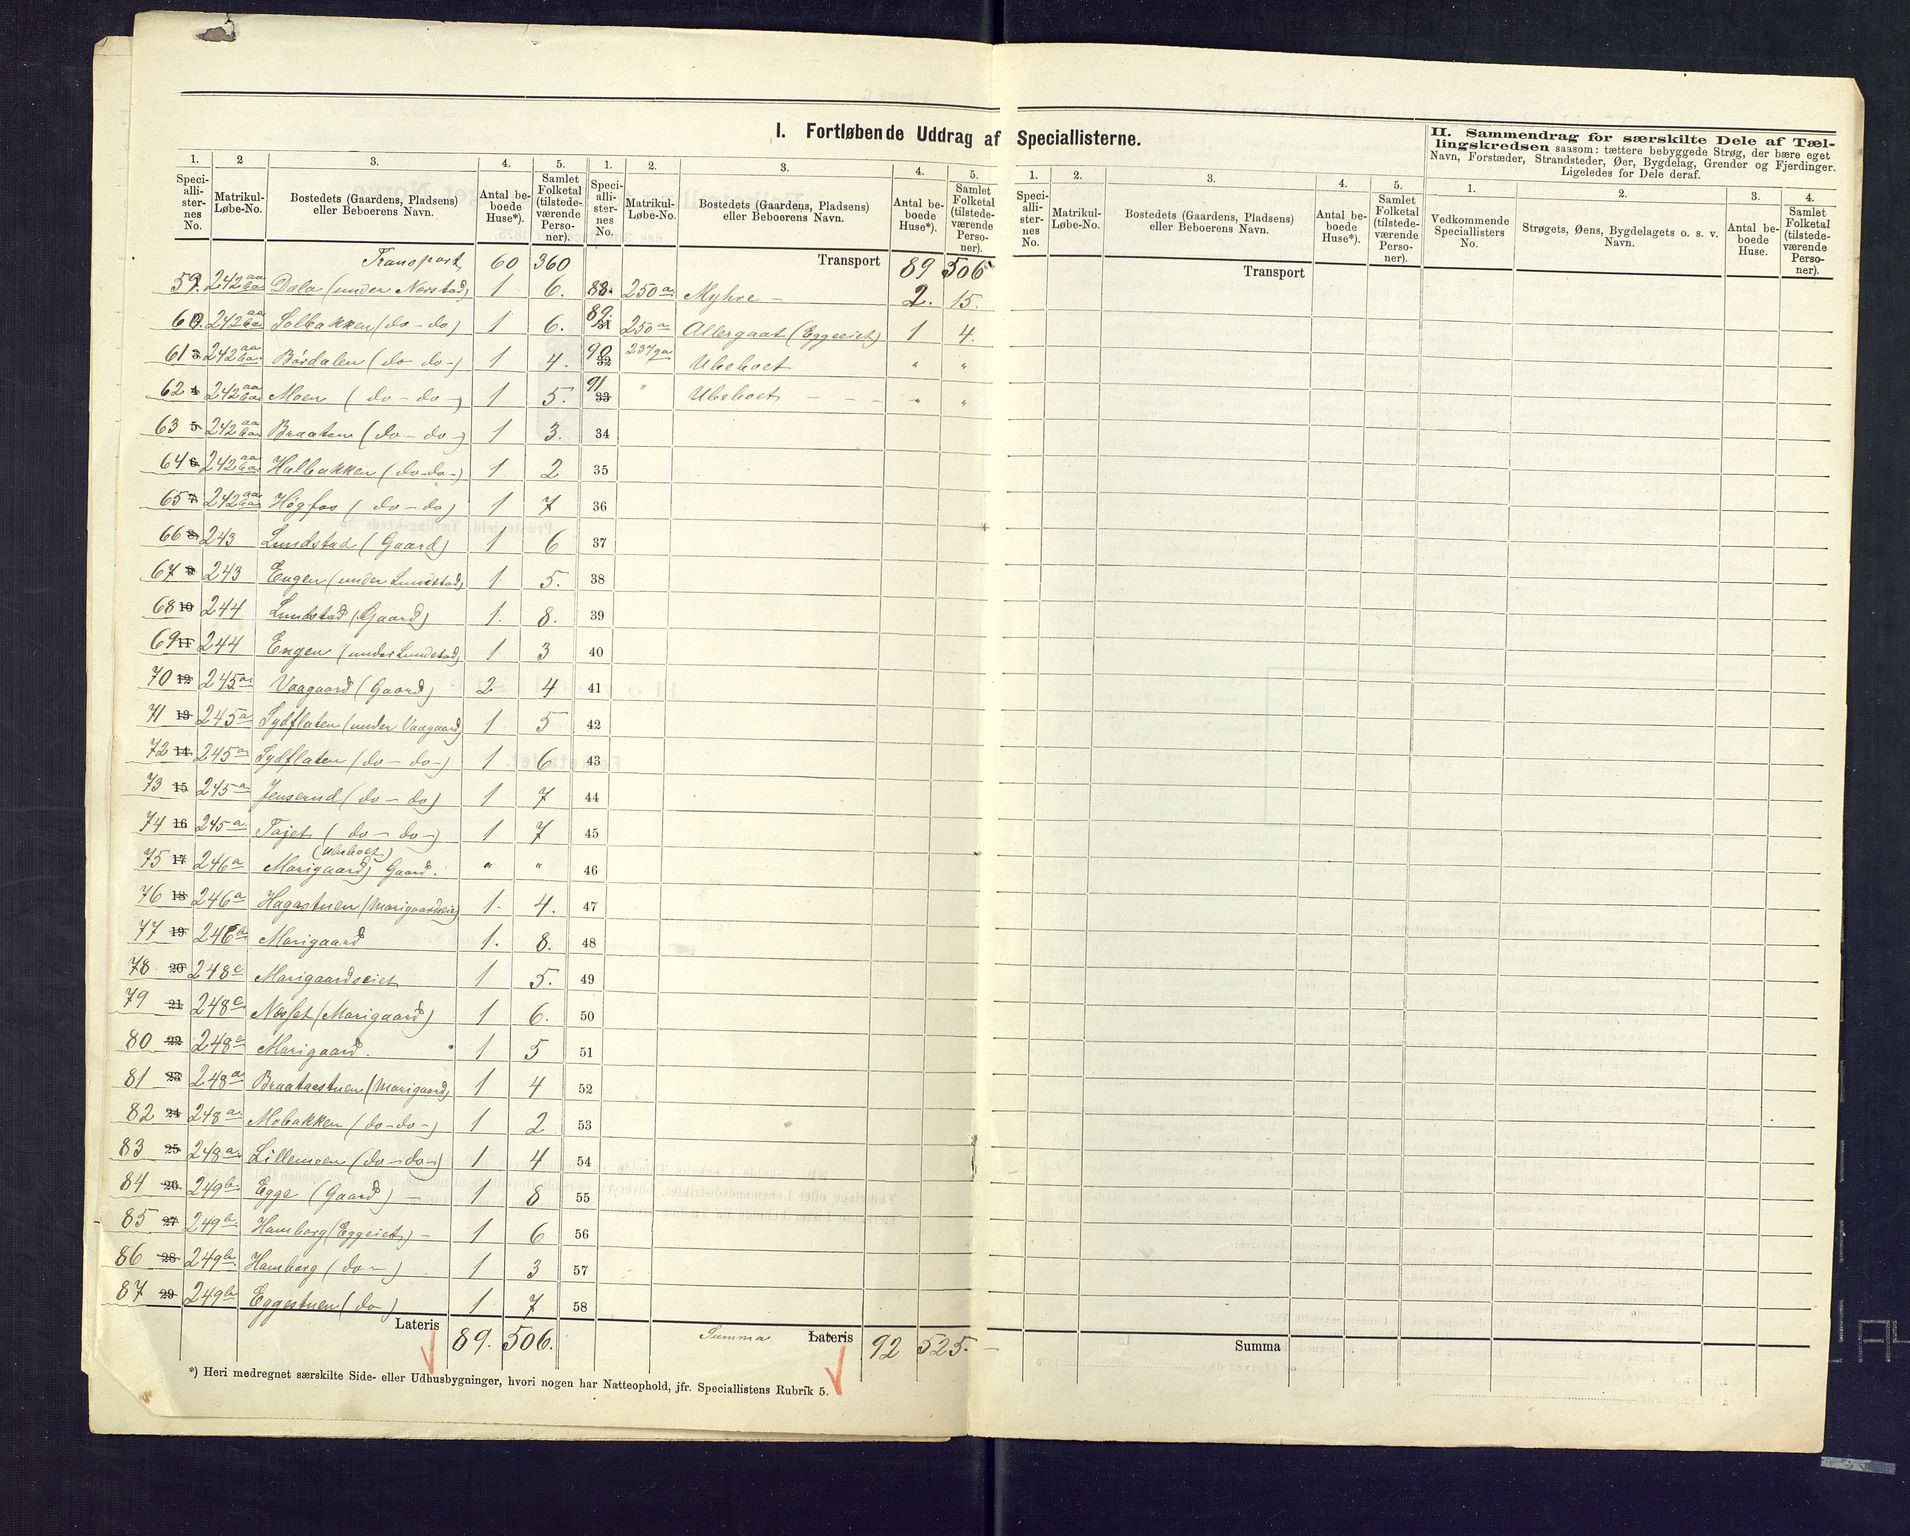 I. Fortløbende Uddrag af Speciallisterne.
II. Sammendrag for særskilte Dele af Tællingskredsen saasom: tættere bebyggede Strøg, der bære eget Navn, Forstæder, Strandsteder, Øer, Bygdelag, Grender og Fjerdinger. Ligeledes for Dele deraf.
1. 2 3. 4. 5. 1. 2. 3. 4. 5. 1. 2. 3. 4. 5. 1. 2. 3. 4.
Speciallisternes No. Matrikul-Løbe-No. Bostedets (Gaardens, Pladsens) eller Beboerens Navn. Antal beboede Huse*). Samlet Folketal (tilstedeværende Personer).
Speciallisternes No. Matrikul-Løbe-No. Bostedets (Gaardens, Pladsens) eller Beboerens Navn. Antal beboede Huse*). Samlet Folketal (tilstedeværende Personer).
Speciallisternes No. Matrikul-Løbe-No. Bostedets (Gaardens, Pladsens) eller Beboerens Navn. Antal beboede Huse*). Samlet Folketal (tilstedeværende Personer).
Vedkommende Speciallisters No. Strøgets, Øens, Bygdelagets o. s. v. Navn. Antal beboede Huse. Samlet Folketal (tilstedeværende Personer).
Transport 60 360
59. 242 Dæla (under Norstad) 1 6.
60. 242 Solbakken (do-do) 1 6.
61 3 242 Børdalen (do do-) 1 4.
62 4 242 Moen (do-do-) 1 5.
63 5 242 Braaten (do-do-) 1 3.
64 6 242 Halbakken (do-do-) 1 2
65 7 242 Høgfos (do-do) 1 7
66 8 243 Lundstad (Gaard) 1 6
67 9 243 Engen (under Lundstad) 1 5.
68 10 244 Lundstad (Gaard) 1. 8.
69 11 244 Engen (under Lundstad) 1 3
70 12 245a Vaagaard (Gaard) 2 4
71 13 245a Sydflaten (under Vaagaard) 1 5
72 14 245a Sydflaten (do-do-) 1 6
73 15 245a Jenserud (do-do) 1 7
74 16 245a Tajet (do-do-) 1 7
75 17 246a Marigaard) Gaard. (Ubeboet) " "
76 18 246a Hagastuen (Marigaardseie) 1. 4.
77 19 246a Marigaard 1. 8.
78 20 248c Marigaardseiet 1 5.
79 21 248c Næsset (Marigaard) 1 6.
80 22 248a Marigaard. 1 5
81 23 248a Braatastuen (Marigaard) 1 4
82 24 248a. Mobakken (do-do-) 1 2
83 25 248a. Lillemoen (do-do-) 1 4
84 26 249b. Egge (Gaard) - 1 8
85 27 249b. Hamborg (Eggeiet) - 1 6
86 28 249b. Hamborg (do-) 1 3
87 29 249b Eggestuen (do) 1 7
Lateris 89. 506.
Transport 89 506
88. 250a. Myhre - 2. 15.
89. 31 250a Allergaat (Eggeeiet) 1 4.
90 32 237 Ubeboet " "
91 33 " Ubeboet - - - " "
34
35
36
37
38
39
40
41
42
43
44
45
46
47
48
49
50
51
52
53
54
55
56
57
58
Summa Lateris 92 525. -
Transport
Summa
*) Heri medregnet særskilte Side- eller Udhusbygninger, hvori nogen har Natteophold, jfr. Speciallistens Rubrik 5.